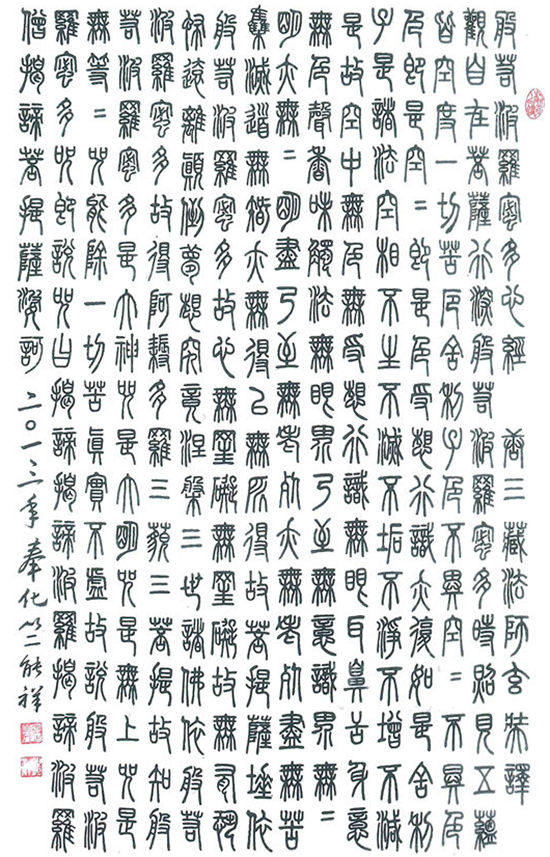 般若波羅蜜多心經 唐三藏法師玄奘譯
觀自在菩薩行深般若波羅蜜多時照見五蘊
皆空度一切苦厄舍利子色不異空=不異色
色即是空=即是色受想行識亦復如是舍利
子是諸法空相不生不滅不垢不淨不增不減
是故空中無色無受想行識無眼耳鼻舌身意
無色聲香味觸法無眼界乃至無意識界無=
明亦無=明盡乃至無老死亦無老死盡無苦
集滅道無智亦無得以無所得故菩提薩埵依
般若波羅蜜多故心無罣礙無罣礙故無有恐
怖遠離顛倒夢想究竟涅槃三世諸佛依般若
波羅蜜多故得阿耨多羅三藐三菩提故知般
若波羅蜜多是大神咒是大明咒是無上咒是
無等=咒能除一切苦真實不虛故說般若波
羅蜜多咒即說咒曰揭諦揭諦波羅揭諦波羅
僧揭諦菩提薩婆訶 二〇一三年奉化竺能祥